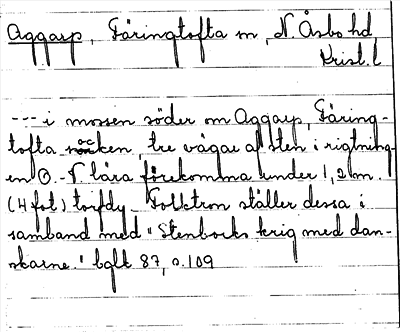 Aggarp, Färingtofta sn, N. Åsbo hd
Krist. l
--- i mossen söder om Aggarp, Färing-
tofta socken, tre vägar af sten i rigtning-
en O.-V lära förekomma under 1,2 m.
(4 fot) torfdy. Folktron ställer dessa i
samband med "Stenbocks krig med dan-
skarne." bglt 87, s. 109